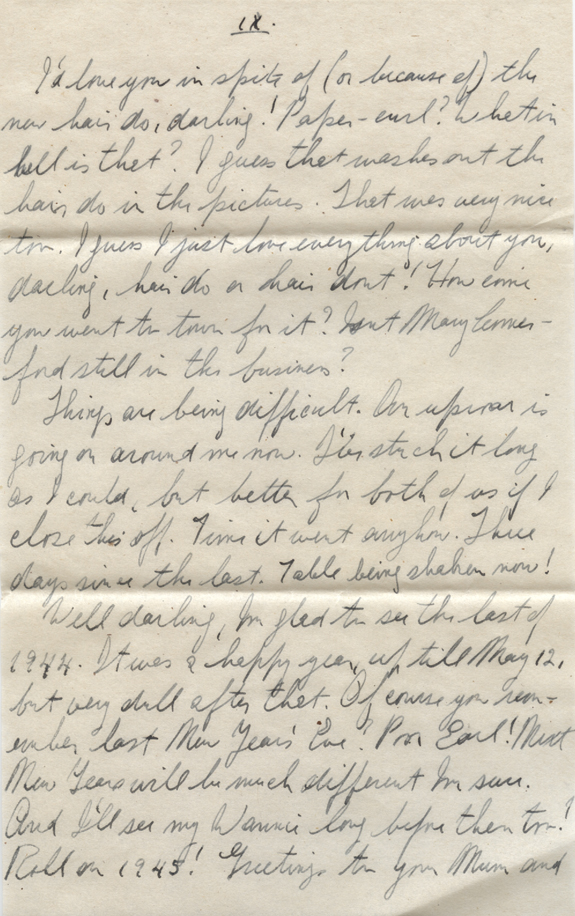 IX.
I'd love you in spite of (or because of) the
new hair do, darling! Paper-curl? What in
hell is that? I guess that washes out the
hair do in the pictures. That was very nice
too. I guess I just love everything about you,
darling, hair do or hair dont! How come
you went to town for it? Isnt Mary Comer-
ford still in the business?
Things are being difficult. An uproar is
going on around me now. I've stuck it long
as I could, but better for both of us if I
close this off. Time it went anyhow. Three
days since the last. Table being shaken now!
Well darling, Im glad to see the last of
1944. It was a happy year, up till May 12,
but very dull after that. Of course you rem-
ember last New Year's Eve? Poor Earl! Next
New Years will be much different Im sure.
And I'll see my Wannie long before then too!
Roll on 1945! Greetings to your Mum and